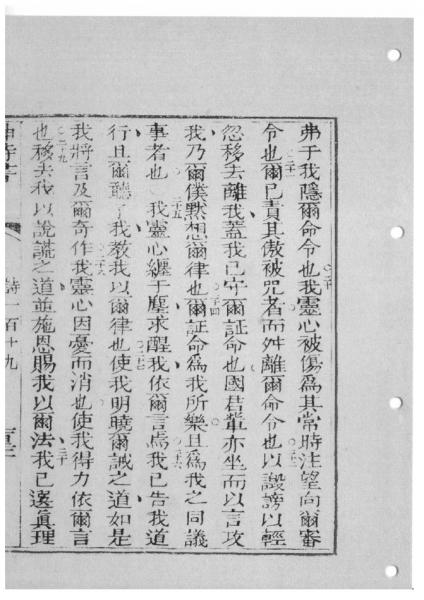 弗于我隱爾命令也我靈心被傷為其常時注望向爾審
令也爾已責其傲被咒者而舛離爾命令也以譭謗以輕
忽移去離我蓋我已守爾証命也國君輩亦坐而以言攻
我乃爾僕默想爾律也爾証命爲我所樂且爲我之同議
事者也我靈心纏于塵求醒我依爾言焉我已告我道
行且爾聽了我教我以爾律也使我明曉爾誡之道如是
我將言及爾奇作我靈心因憂而消也使我得力依爾言
也移去我以說謊之道並施恩賜我以爾法我已選眞理
詩一百十九